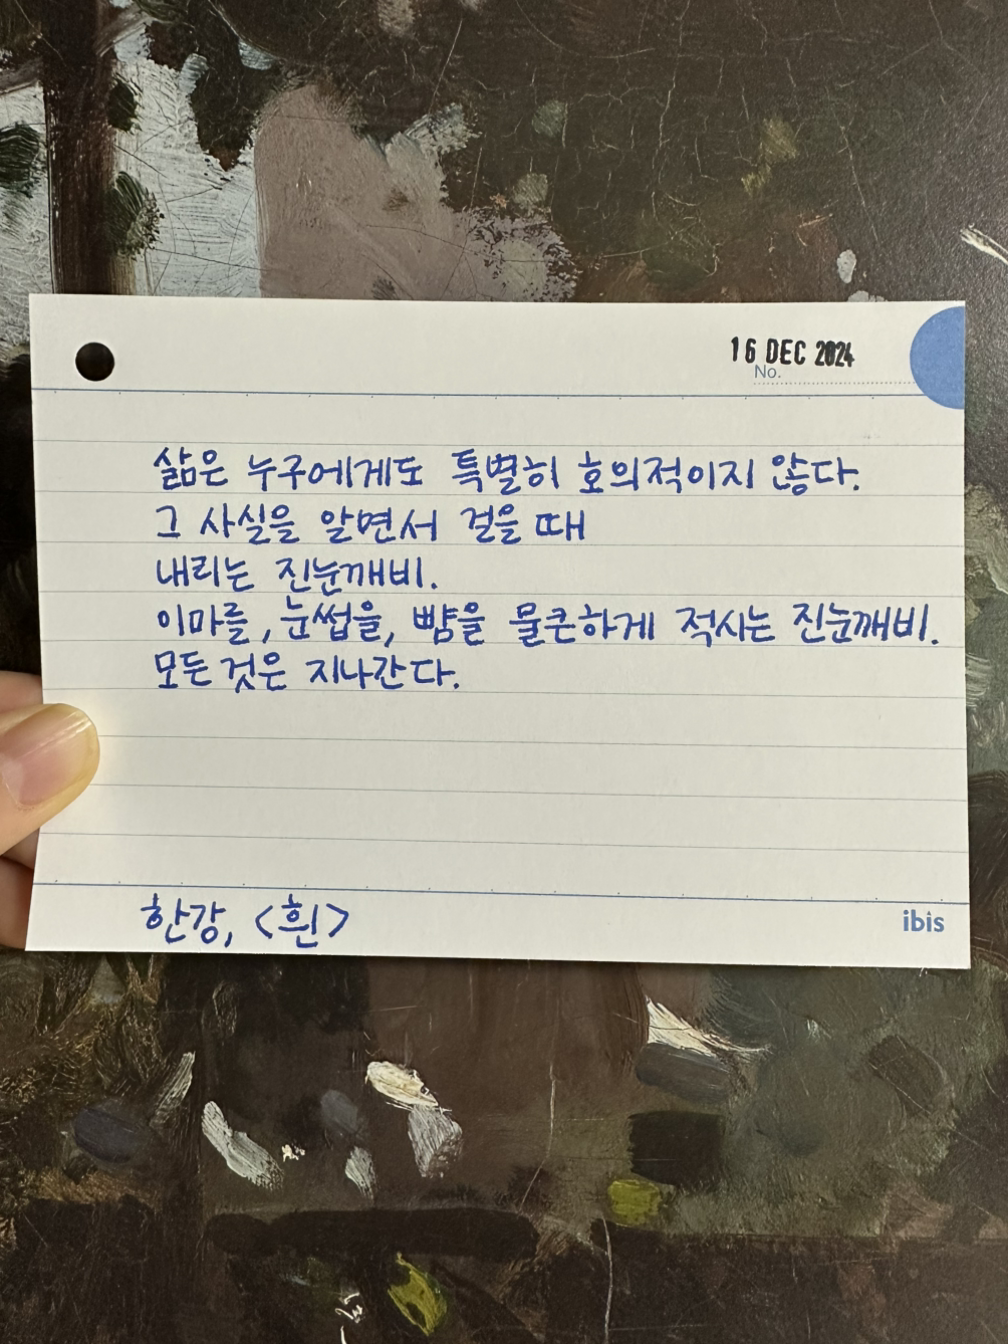 16 DEC 2024
No.
삶은 누구에게도 특별히 호의적이지 않다.
그 사실을 알면서 걸을 때
내리는 진눈깨비.
이마를, 눈썹을, 뺨을 물큰하게 적시는 진눈깨비.
모든 것은 지나간다.
한강, <흰>
ibis